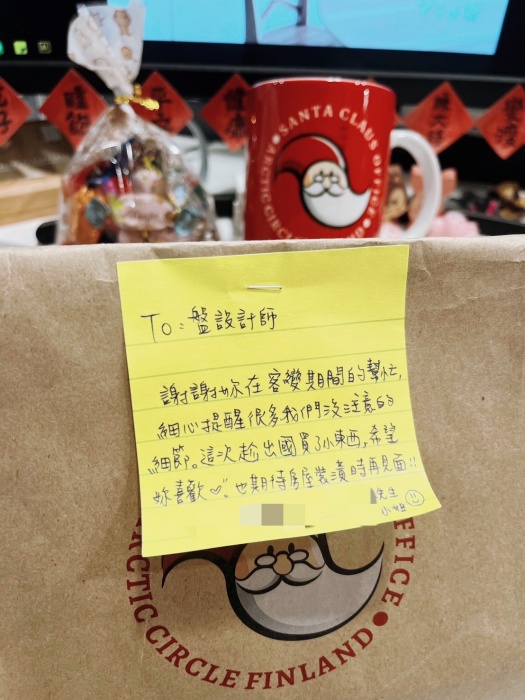 SANTA CLAUS OFFICE
ARCTIC CIRCLE
To: 盤設計師
謝謝妳在客變期間的幫忙,
細心提醒很多我們沒注意的
細節。這次趁出國買了小東西,希望
妳喜歡♡”. 也期待房屋裝潢時再見面!!
先生
小姐
ARCTIC CIRCLE FINLAND
OFFICE